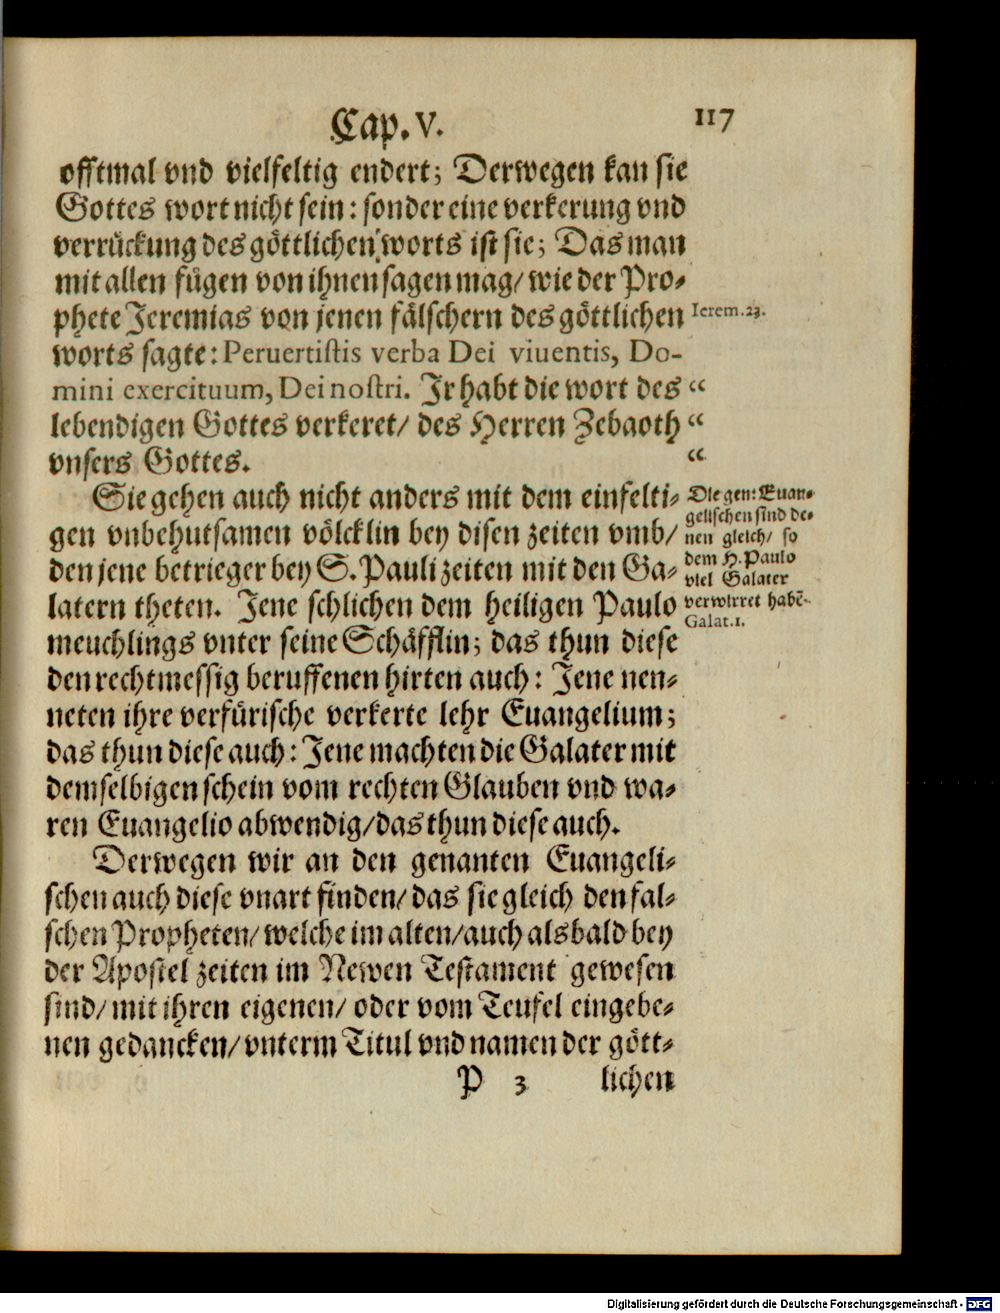 Cap. V. 117
offtmal vnd vielfeltig endert; Derwegen kan sie
Gottes wort nicht sein: sonder eine verkerung vnd
verrückung des göttlichen worts ist sie; Das man
mit allen fügen von ihnen sagen mag/ wie der Pro-
phete Jeremias von jenen fälschern des göttlichen
Ierem. 23.
worts sagte: Peruertistis verba Dei viuentis, Do-
mini exercituum, Dei nostri. Ir habt die wort des “
lebendigen Gottes verkeret/ des Herren Zebaoth “
vnsers Gottes. “
Sie gehen auch nicht anders mit dem einfelti-
gen vnbehutsamen völcklin bey disen zeiten vmb/
den jene betrieger bey S. Pauli zeiten mit den Ga-
latern theten. Jene schlichen dem heiligen Paulo
meuchlings vnter seine Schäfflin; das thun diese
den rechtmessig beruffenen hirten auch: Jene nen-
neten ihre verfürische verkerte lehr Euangelium;
das thun diese auch: Jene machten die Galater mit
demselbigen schein vom rechten Glauben vnd wa-
ren Euangelio abwendig/ das thun diese auch.
Die gen: Euan-
gelischen sind de-
nen gleich/ so
dem H. Paulo
viel Galater
verwirret habē.
Galat. 1.
Derwegen wir an den genanten Euangeli-
schen auch diese vnart finden/ das sie gleich den fal-
schen Propheten/ welche im alten/ auch alsbald bey
der Apostel zeiten im Newen Testament gewesen
sind/ mit ihren eigenen/ oder vom Teufel eingebe-
nen gedancken/ vnterm Titul vnd namen der gött-
P 3 lichen
Digitalisierung gefördert durch die Deutsche Forschungsgemeinschaft - DFG